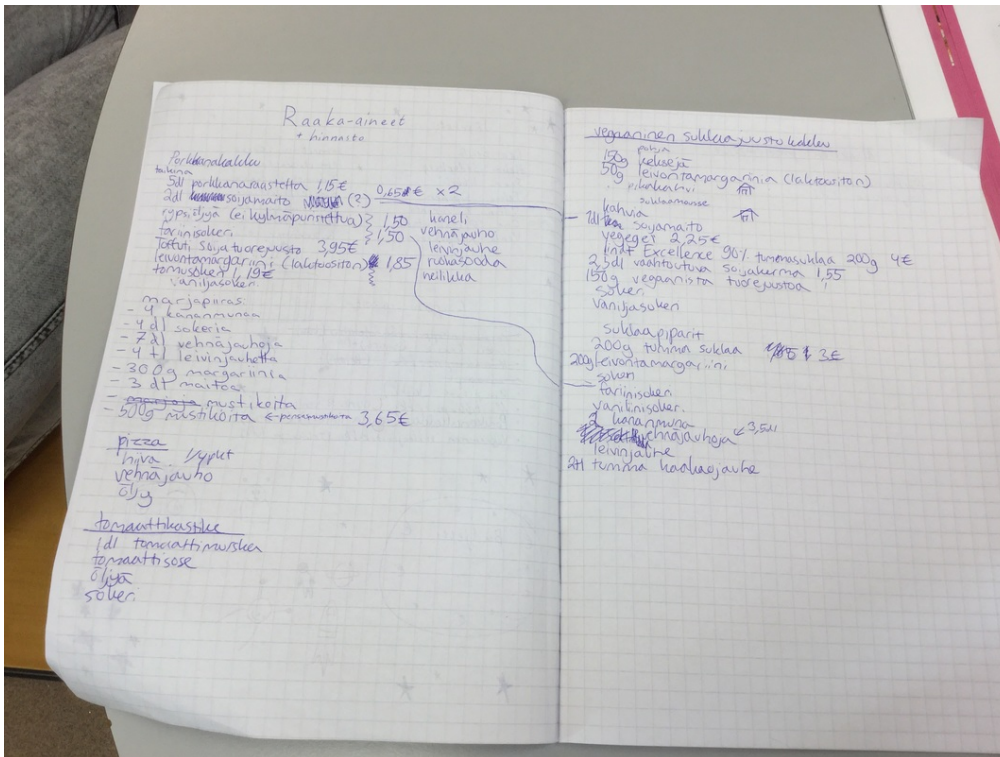 Raaka-aineet
+ hinnasto
Porkkanakakku
taikina
5dl porkkanaraastetta 1,15€
2dl soijamaito (?) 0,65€ x2
rypsiöljyä (ei kylmäpuristettua) 1,50
fariinisokeri 1,50
Toffuti, Soija tuorejuusto 3,95€
leivontamargariini (laktoositon) 1,85
tomusokeri 1,19€
vaniljasokeri
kaneli
vehnäjauho
leivinjauhe
ruokasooda
neilikka
marjapiiras
- 4 kananmunaa
- 4 dl sokeria
- 7 dl vehnäjauhoja
- 4 tl leivinjauhetta
- 300g margariinia
- 3 dl maitoa
- mustikoita
- 500g mustikoita ← pensasmustikoita 3,65€
pizza
hiiva
vehnäjauho
öljy
tomaattikastike
1dl tomaattimurska
tomaattisose
öljyä
sokeri
vegaaninen suklaajuustokakku
pohja
150g keksejä
50g leivontamargariinia (laktoositon)
pikakahvi
suklaamousse
kahvia
1dl soijamaito
vegegel 2,25€
lindt Excellence 90% tummasuklaa 200g 4€
2,5dl vaahtoutuva soijakerma 1,55
150g vegaanista tuorejuustoa
sokeri
vaniljasokeri
suklaapiparit
200g tumma suklaa 3€
200g leivontamargariini
- sokeri
- fariinisokeri
vaniliinisokeri
2 kananmuna
vehnäjauhoja ← 3,5dl
leivinjauhe
2dl tumma kaakaojauhe